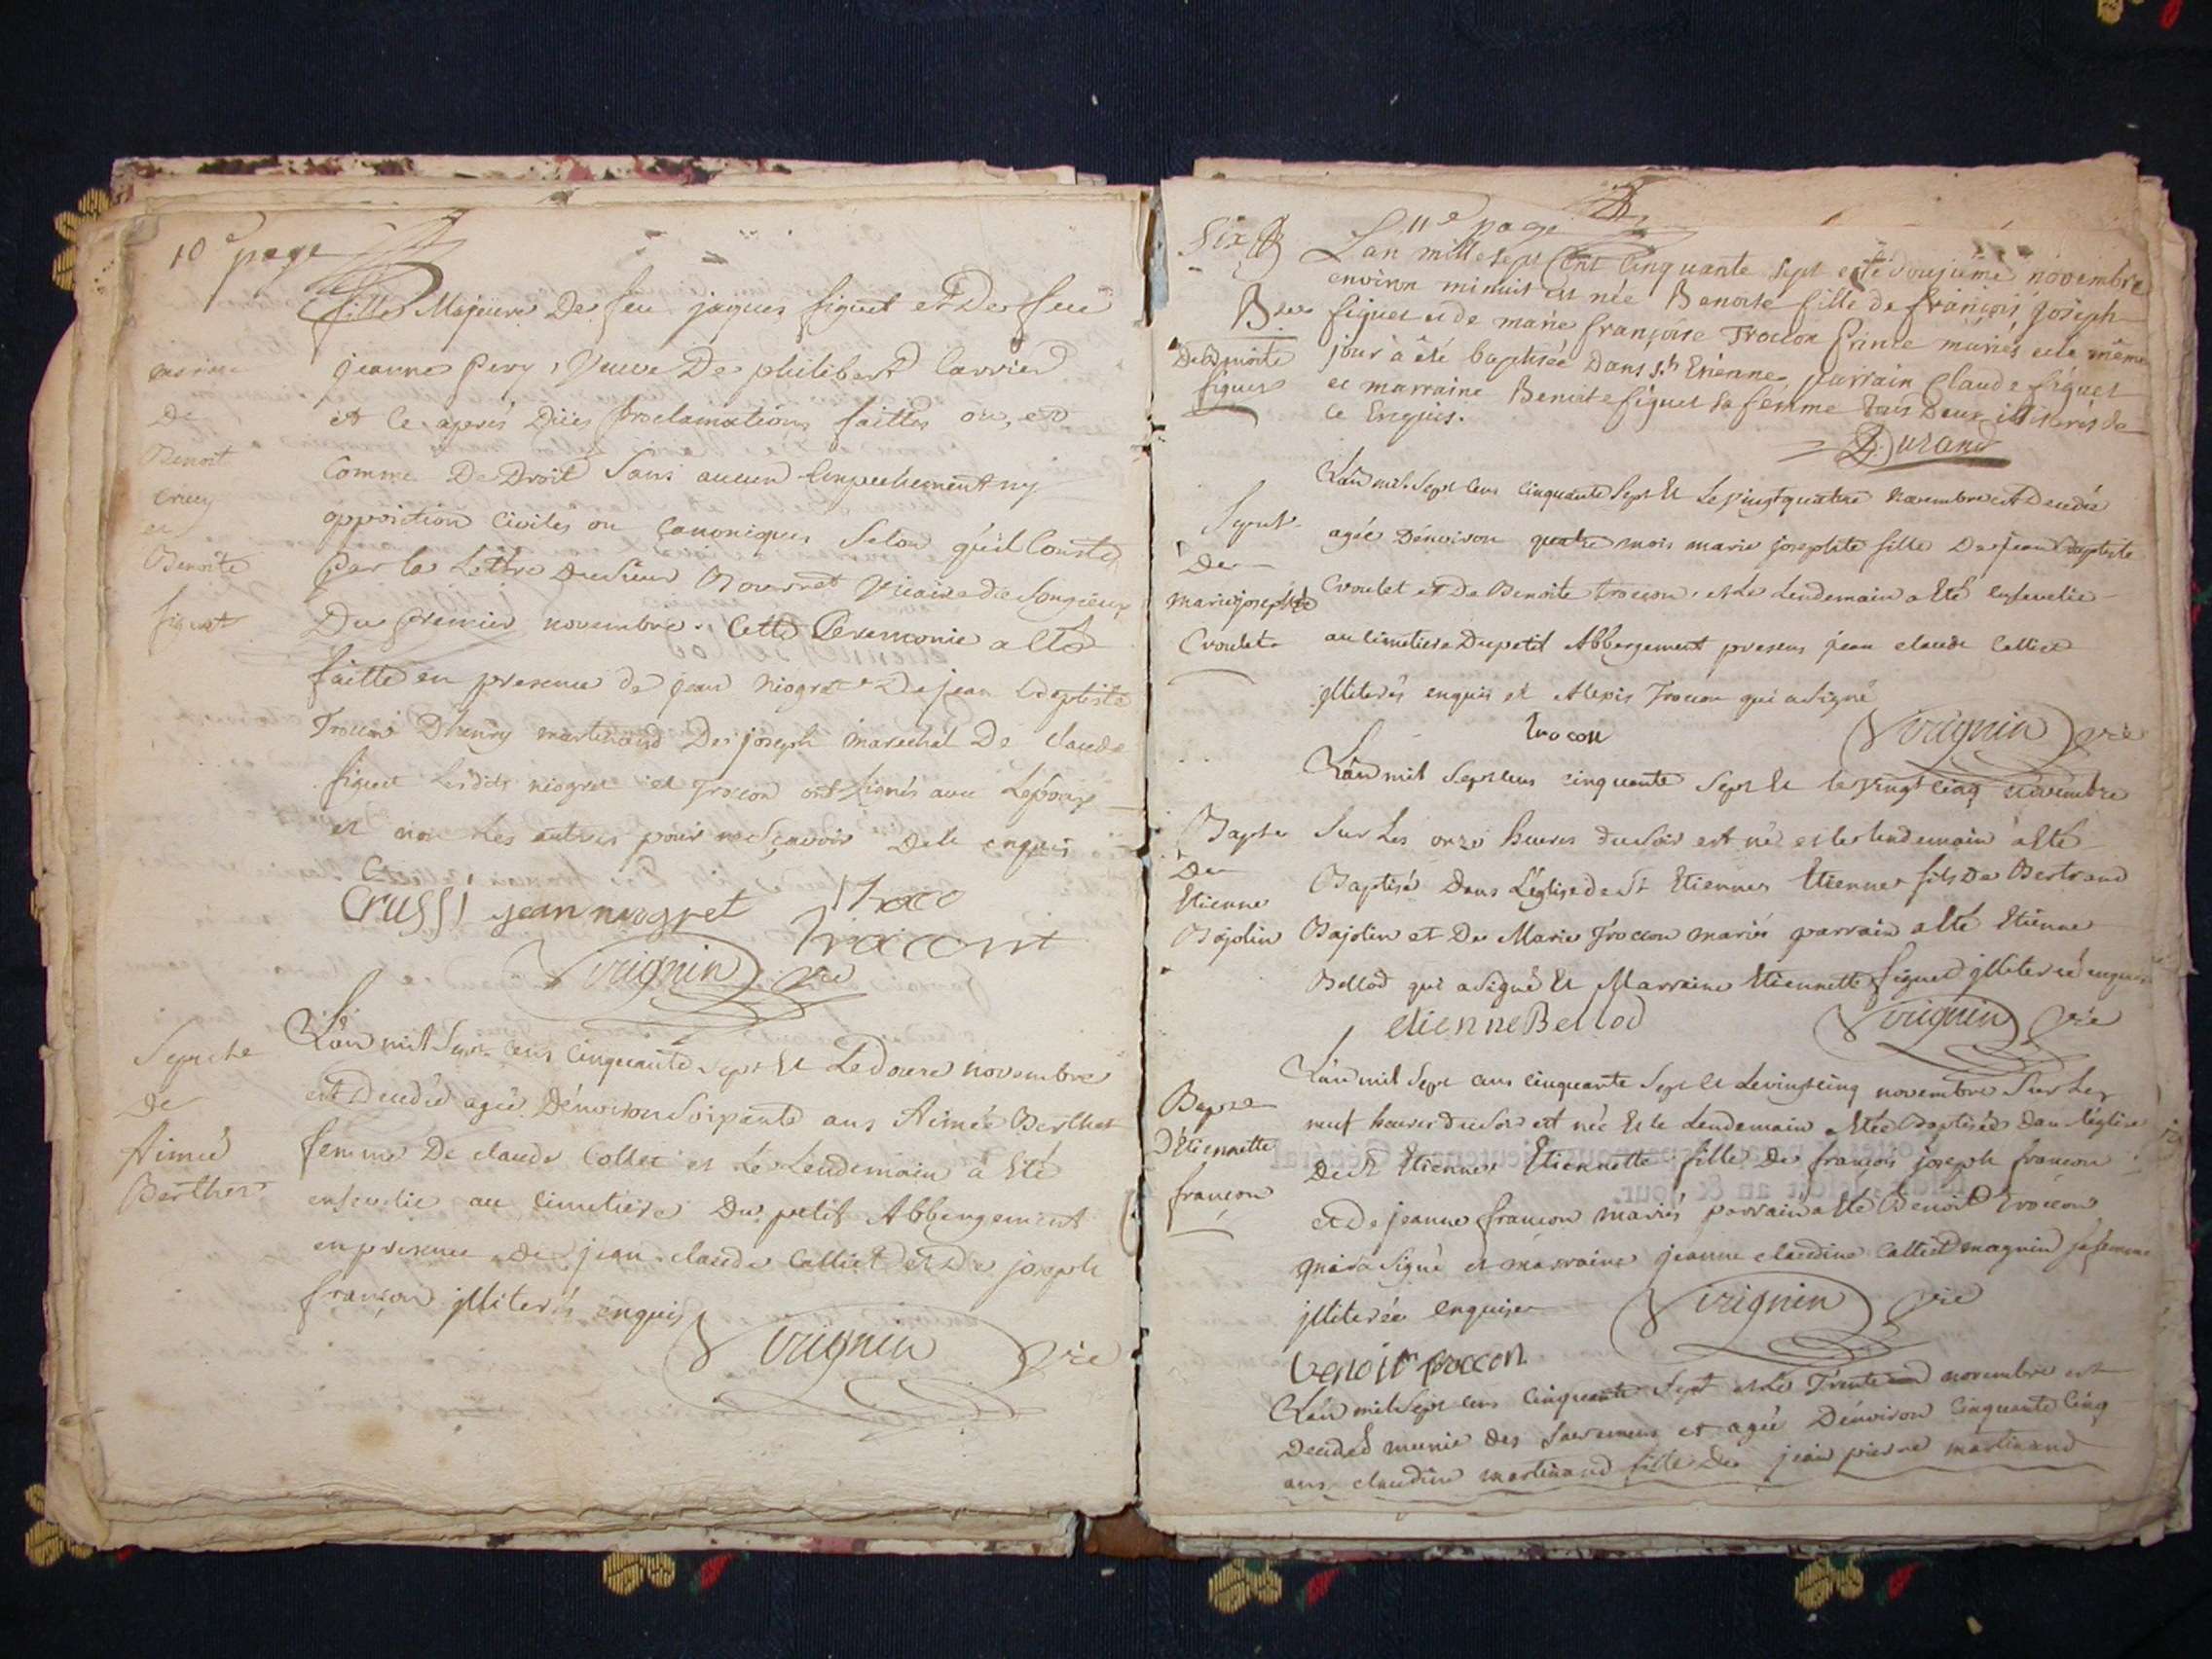 10e page
fille Majeure De feu jaques figuet et De feue
jeanne pery, Veuve De philibert Carrier
et ce après Dües proclamations faittes
Comme De Droit Sans aucun Empechement ny
opposition Civiles ou Canoniques Selon qu'il Conste
Par la Lettre du Sieur Vicaire de Songieux
Du premier novembre. Cette Ceremonie a Eté
faitte en presence de jean niogret De jean Baptiste
Trocon D'henry martinand De joseph marechal De claude
figuet Lesdits niogret et Trocon ont Signés avec L'epoux
et non Les autres pour ne Sçavoir De ce enquis
Mariage
De
Benoit
Crucy
et
Benoite
figuet
Crussi jean niogret
Trocont
Virignin Vie
Sepre De
Aimeé
Berthet
L'an mil Sept cens Cinquante Sept Et Le Douze novembre
est Decedée agée D'environ Soixante ans Aimée Berthet
femme De claude Collet et Le Lendemain a Eté
ensevelie au Cimetiere Du petit Abbergement
en presence De jean claude Calliet et De joseph
françon illiterés enquis
Virignin Vie
Six
11e page
L'an mille Sept Cent Cinquante Sept et le douzieme novembre
environ minuit est née Benoite fille de françois joseph
figuet et de marie françoise Trocon mariés et le même
jour a été baptisée Dans St Etienne, parrain Claude figuet
et marraine Benoite figuet sa femme tous deux illiterés de
ce Enquis.
Durand
De Benoite
figuet
L'an mil Sept cens cinquante Sept Et Le vingt quatre novembre est Decedée
agée D'environ quatre mois marie josephte fille De jean Baptiste
Croulet et De Benoite trocon, et Le Lendemain a Eté ensevelie
au Cimetiere Du petit Abbergement presens jean claude Calliet
illiterés enquis et Alexis Trocon qui a Signé
trocon Virignin Vie
Sepult
De
marie josephte
Croulet
L'an mil Sept cens cinquante Sept Et le vingt cinq novembre
Sur Les onze heures du Soir est né et le lendemain a Eté
Baptisé Dans L'église de St Etienne Etienne fils De Bertrand
Bajolin et De Marie Trocon mariés parrain a Eté Etienne
Bellod qui a Signé Et Marraine Etiennette figuet illiterée enquise
etienne Bellod Virignin Vie
Bapte
De
Etienne
Bajolin
L'an mil Sept cens cinquante Sept Et Le vingt cinq novembre Sur Les
neuf heures du Soir est née Et le Lendemain a Eté Baptisée Dans l'église
De St Etienne Etiennette fille De françois joseph françon
et De jeanne françon mariés parrain a Eté Benoit Trocon
qui a Signé et marraine jeanne claudine Calliet magnin sa femme
illiterée Enquise Virignin Vie
benoit trocon
Bapte
D'Etiennette
françon
L'an mil Sept cens Cinquante Sept et Le Trente novembre est
Decedée munie des Sacremens et agée D'environ Cinquante Cinq
ans claudine martinand fille De jean pierre martinand